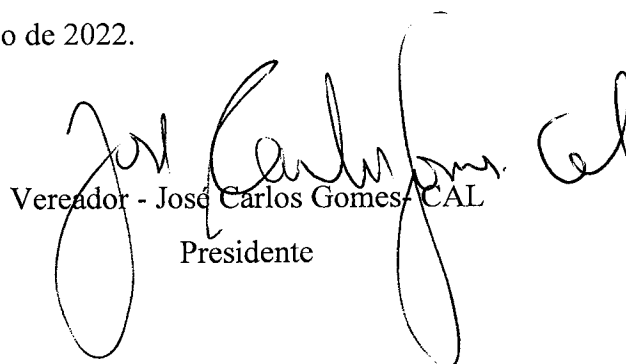 o de 2022.
José Carlos Gomes. Cal
Vereador - José Carlos Gomes- CAL
Presidente